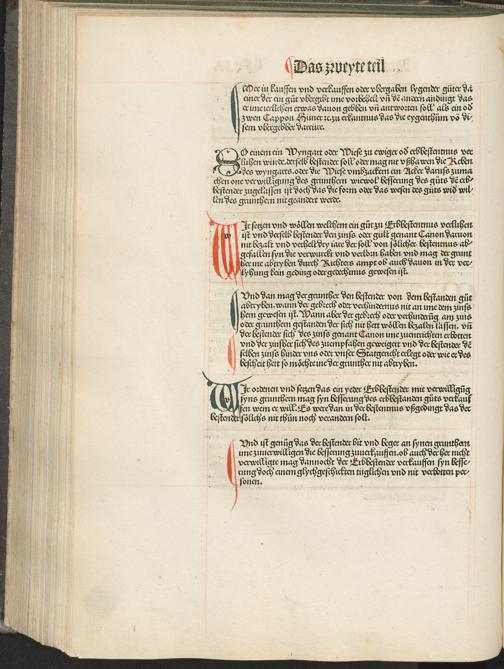 Das zweyte teil
leWee in kauffen vnd verkauffen oder vbergaben lygender güter da
einer der ein güt vbergibt ime vorbehelt vñ dē andern andingt das
er ime ierlichen etwas dauon gebben vñ antworten soll als ein od
zwen Cappon Hüner ꝛc zu erkantnus das die eygenthüm vō di
sem vbergebber darrüre.
SO einem ein Wyngart oder Wiese zu ewiger od erbbestentnus ver
luhen würde. derselb bestender soll oder mag nit vßhawen die Reben
des wyngarts. oder die Wiese vmbzacken ein Acker daruß zuma
chen one verwilligung des grunthern wiewol besserung des güts dē erb-
bestender zugelassen ist doch das die form oder das wesen des güts wid wil-
len des grunthern nit geandert werde.
WJr setzen vnd wöllen welchem ein güt zu Erbbestentnus verluhen
ist vnd derselb bestender den zinss oder gült genant Canon dauon
nit bezalt vnd verhelt dry iare der soll von sölicher bestentnus ab-
gefallen syn die verwürckt vnd verlorn haben vnd mag der grunt
her ine abtryben durch Richters ampt ob auch dauon in der ver-
lyhung kein geding oder gedechtnus gewesen ist.
Vnd dan mag der grunther den bestender von dem bestanden güt
abtryben. wann der gebrech oder verhindernus nit an ime dem zinß-
hern gewesen ist. Wann aber der gebrech oder verhinderūg am zins
oder grunthern gestanden der sich nit hett wöllen bezalen lassen. vñ
der bestender sich des zinß genant Canon ime zuentrichten erbotten
vnd der zinßher sich des zuempfahen geweigert vnd der bestender dē
selben zinß hinder vns oder vnser Statgericht erlegt oder wie er des
bescheit hett so möcht ine der grunther nit abtryben.
WJr ordenen vnd setzen das ein yeder Erbbestender mit verwilligūg
syns grunthern mag syn besserung des erbbestanden güts verkauf
fen wem er will. Es wer dan in der bestentnus vßgedingt das der
bestender sölichs nit thün noch verandern solt.
Vnd ist genüg das der bestender bit vnd beger an synen grunthern
ime zuuerwilligen die besserung zuuerkauffen. ob auch der her nicht
verwilligte mag dannocht der Erbbestender verkauffen syn besse-
rung doch einem glychgeschickten tüglichen vnd nit verbotten per-
sonen.